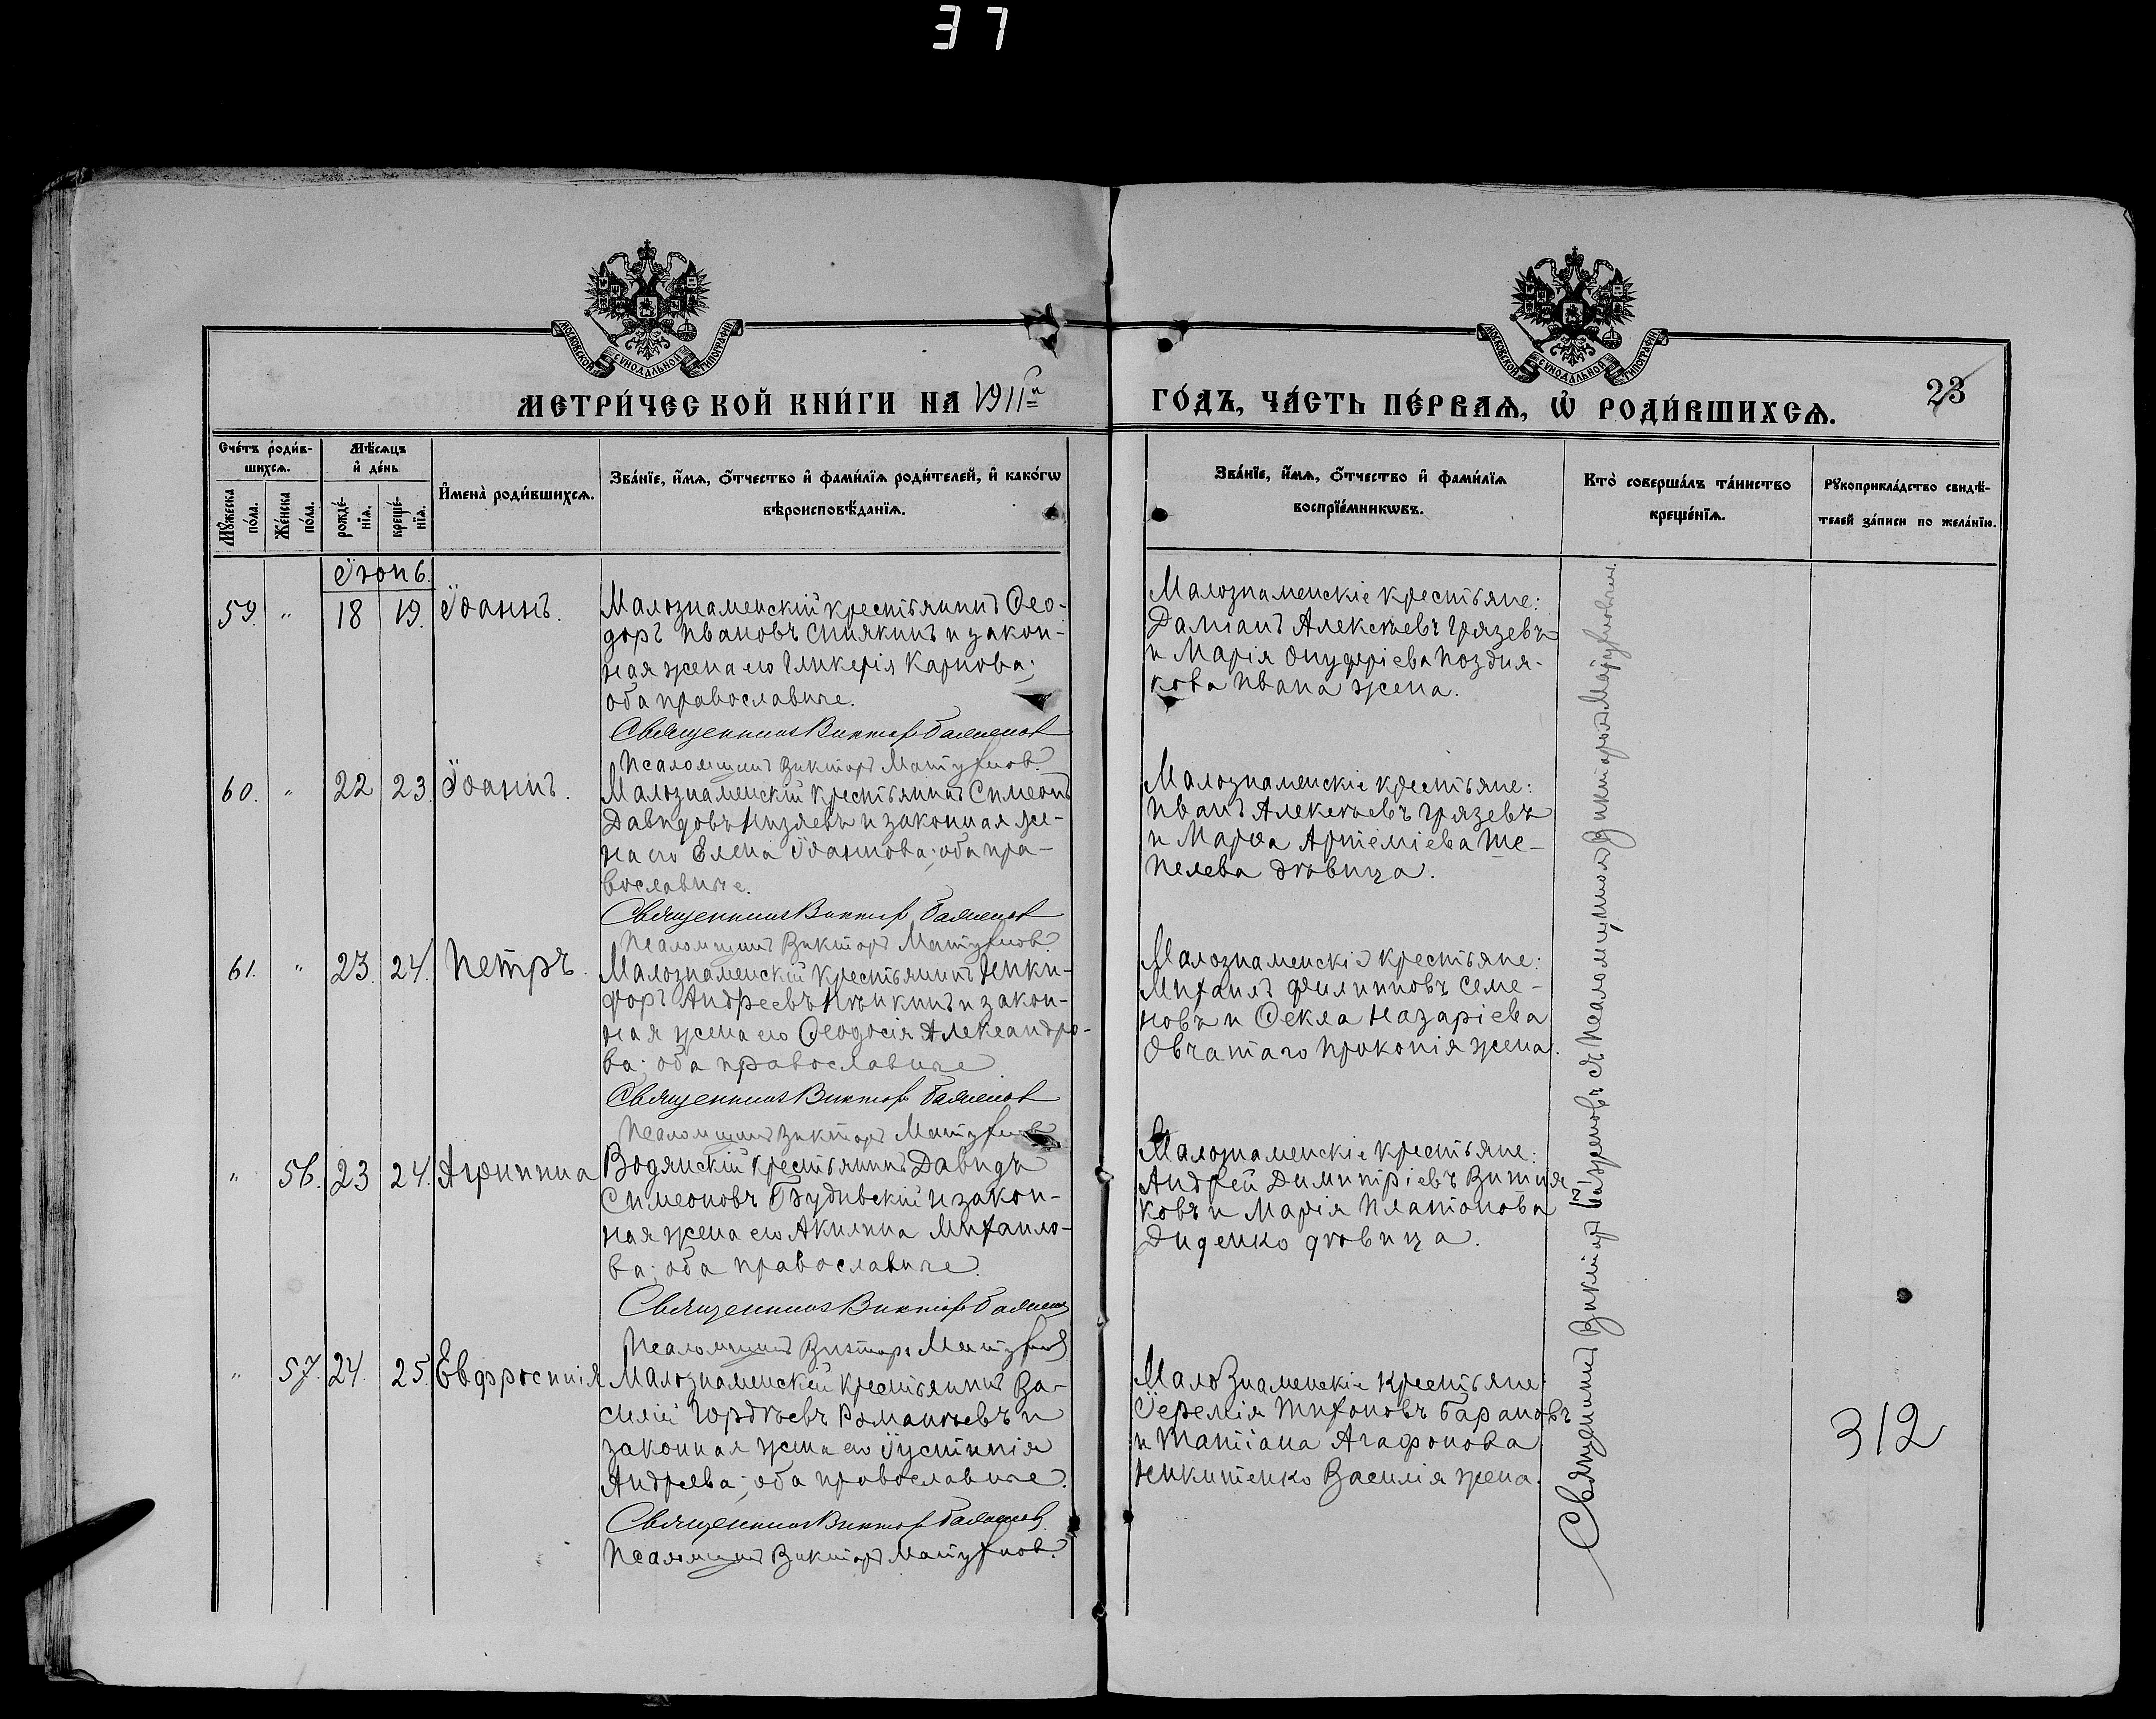 37
МОСКОВСКОЙ СѴНОДАЛЬНОЙ ТИПОГРАФІИ
МОСКОВСКОЙ СѴНОДАЛЬНОЙ ТИПОГРАФІИ
МЕТРИ́ЧЕСКОЙ КНИ́ГИ НА 1911й
ГО́ДЪ, ЧА́СТЬ ПЕ́РВАѦ, Ѡ҆ РОДИ́ВШИХСѦ.
23
Сче́тъ роди́в-
шихсѧ.
Мꙋ́жеска по́ла.
Же́нска по́ла.
Мѣ́сѧцъ
и҆ де́нь
рожде́-
нїѧ.
креще́-
нїѧ.
И҆мена̀ роди́вшихсѧ.
Зва́нїе, и҆́мѧ, ѻ҆́тчество и҆ фами́лїѧ роди́телей, и҆ како́гѡ
вѣроисповѣ́данїѧ.
Зва́нїе, и҆́мѧ, ѻ҆́тчество и҆ фами́лїѧ
воспрїе́мникѡвъ.
Кто̀ соверша́лъ та́инство
креще́нїѧ.
Рꙋкоприкла́дство свидѣ́-
телей за́писи по жела́нїю.
Іюнь.
59. " 18 19. Іоаннъ.
Малознаменскій крестьянинъ Ѳео-
доръ Ивановъ Синякинъ и закон-
ная жена его Гликерія Карпова;
оба православные.
Священникъ Викторъ
Псаломщикъ Викторъ
Малознаменскіе крестьяне:
Даміанъ Алексѣевъ Грязевъ
и Марія Онуфріева Поздня-
кова Ивана жена.
60. " 22 23. Іоаннъ.
Малознаменскій крестьянинъ Симеонъ
Давидовъ Низяевъ и законная же-
на его Елена Іоаннова; оба пра-
вославные.
Священникъ Викторъ
Псаломщикъ Викторъ
Малознаменскіе крестьяне:
Иванъ Алексѣевъ Грязевъ
и Марѳа Артеміева Ше-
пелева дѣвица.
61. " 23. 24. Петръ.
Малознаменскій крестьянинъ Ники-
форъ Андреевъ и закон-
ная жена его Ѳеодосія Александро-
ва; оба православные
Священникъ Викторъ
Псаломщикъ Викторъ
Малознаменскіе крестьяне:
Михаилъ Филипповъ Семе-
новъ и Ѳекла Назаріева
Овчатаго Прокопія жена.
" 56. 23 24. Агрипина
Водянскій крестьянинъ Давидъ
Симеоновъ Будивскій и закон-
ная жена его Акилина Михаило-
ва; оба православные.
Священникъ Викторъ
Псаломщикъ Викторъ
Малознаменскіе крестьяне:
Андрей Димитріевъ Витня-
ковъ и Марія Платонова
Диденко дѣвица.
" 57. 24. 25. Евфросинія
Малознаменскій крестьянинъ Ва-
силій Гордѣевъ Романьевъ и
законная жена его Іустинія
Андреева; оба православные.
Священникъ Викторъ
Псаломщикъ Викторъ
Мало Знаменскіе крестьяне:
Іеремія Тихоновъ Барановъ
и Татіана Агафонова
Никитенко Василія жена.
Священникъ Викторъ съ Псаломщикомъ Викторомъ
312